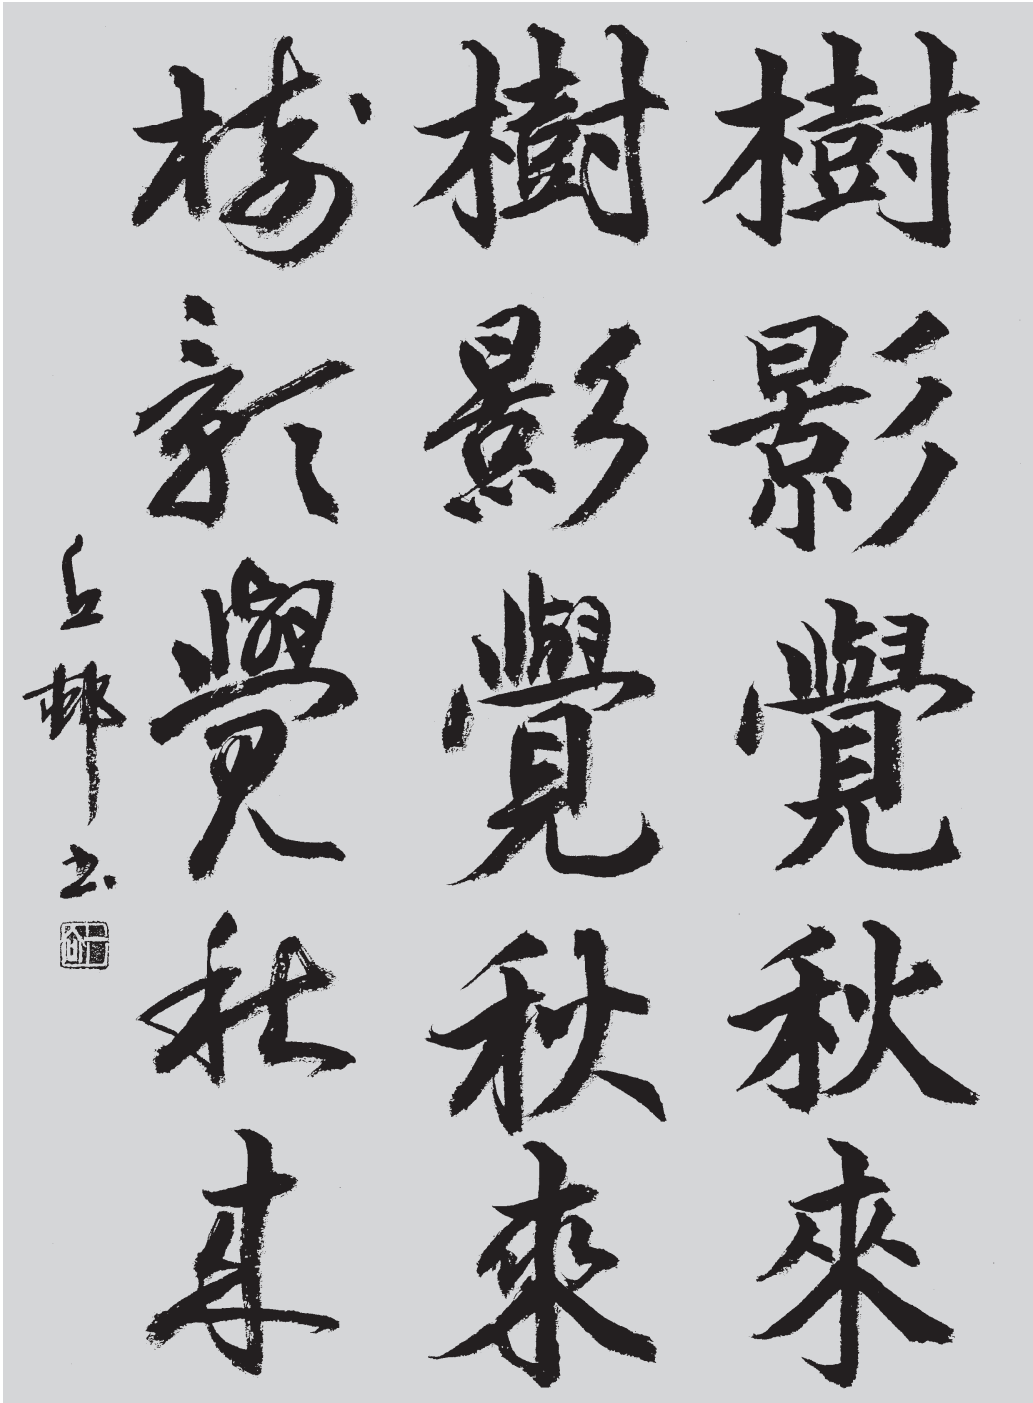 樹影覺秋來
樹影覺秋來
樹影覺秋來
丘邨书